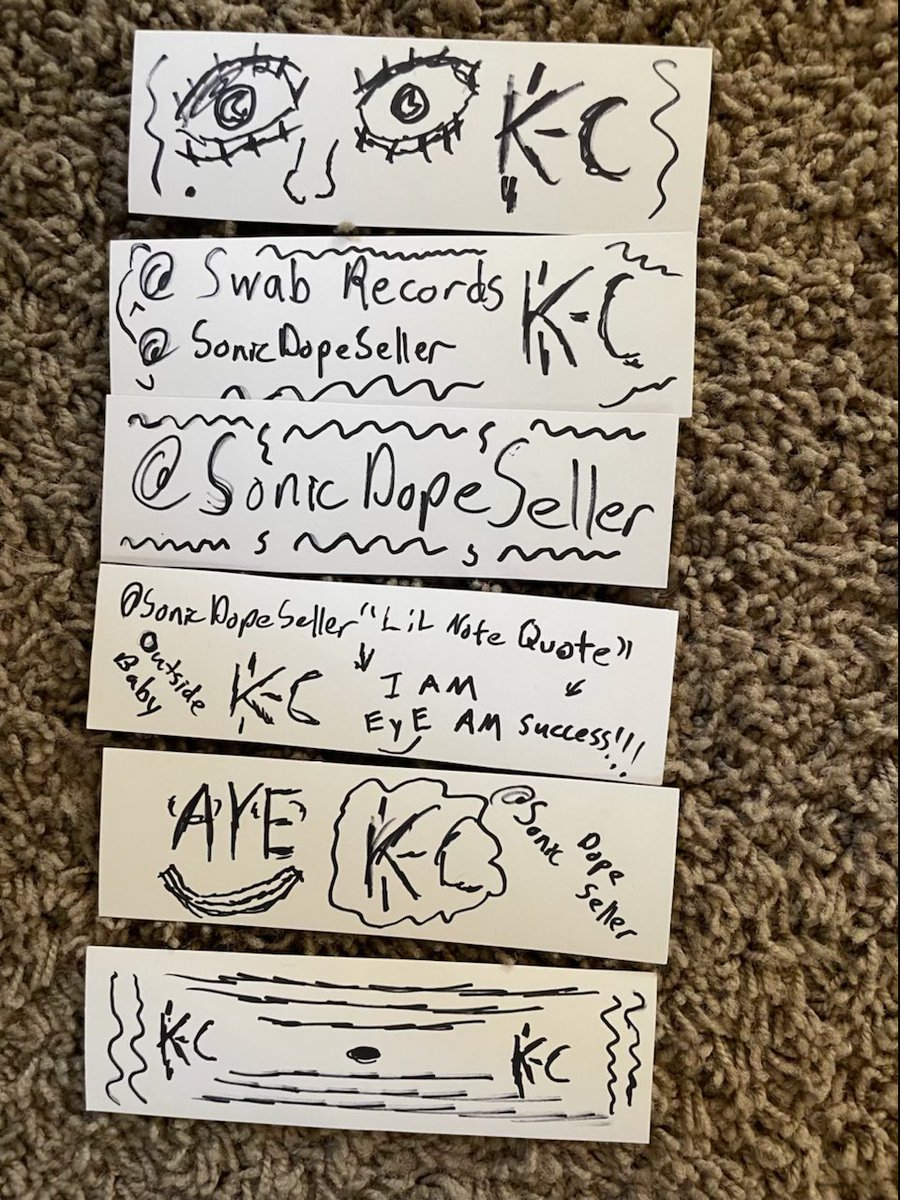 K-C
@ Swab Records
@ SonicDopeSeller
K-C
@SonicDopeSeller
@SonicDopeSeller "LiL Note Quote"
Outside
Baby
K-C
I AM
EyE AM success!!!
AYE
K-C
@Sonic
Dope
Seller
K-C
K-C